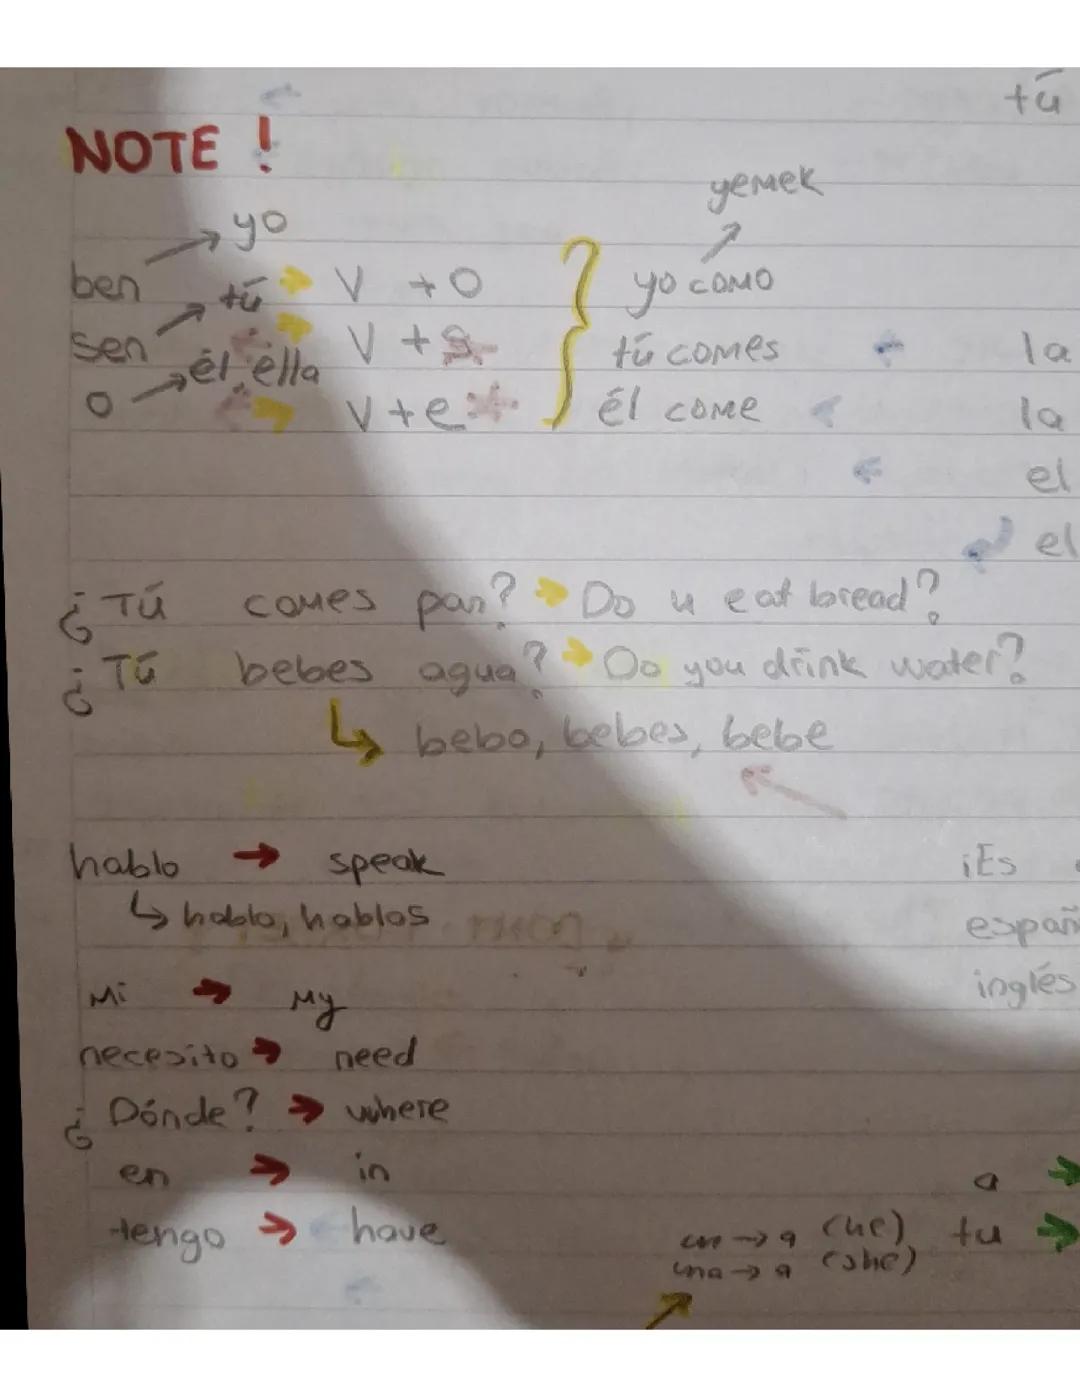 tú
NOTE !
yemek
yo
ben tú V + O yo como
sen V + s tú comes la
o él, ella V + e él come la
el
el
¿Tú comes pan? Do u eat bread?
¿Tú bebes agua? Do you drink water?
bebo, bebes, bebe
hablo → speak ¡Es
hablo, hablas españ
Mi → My inglés
necesito → need
¿Dónde? → where
en → in a →
tengo → have un → a (he) tu →
una → a (she)